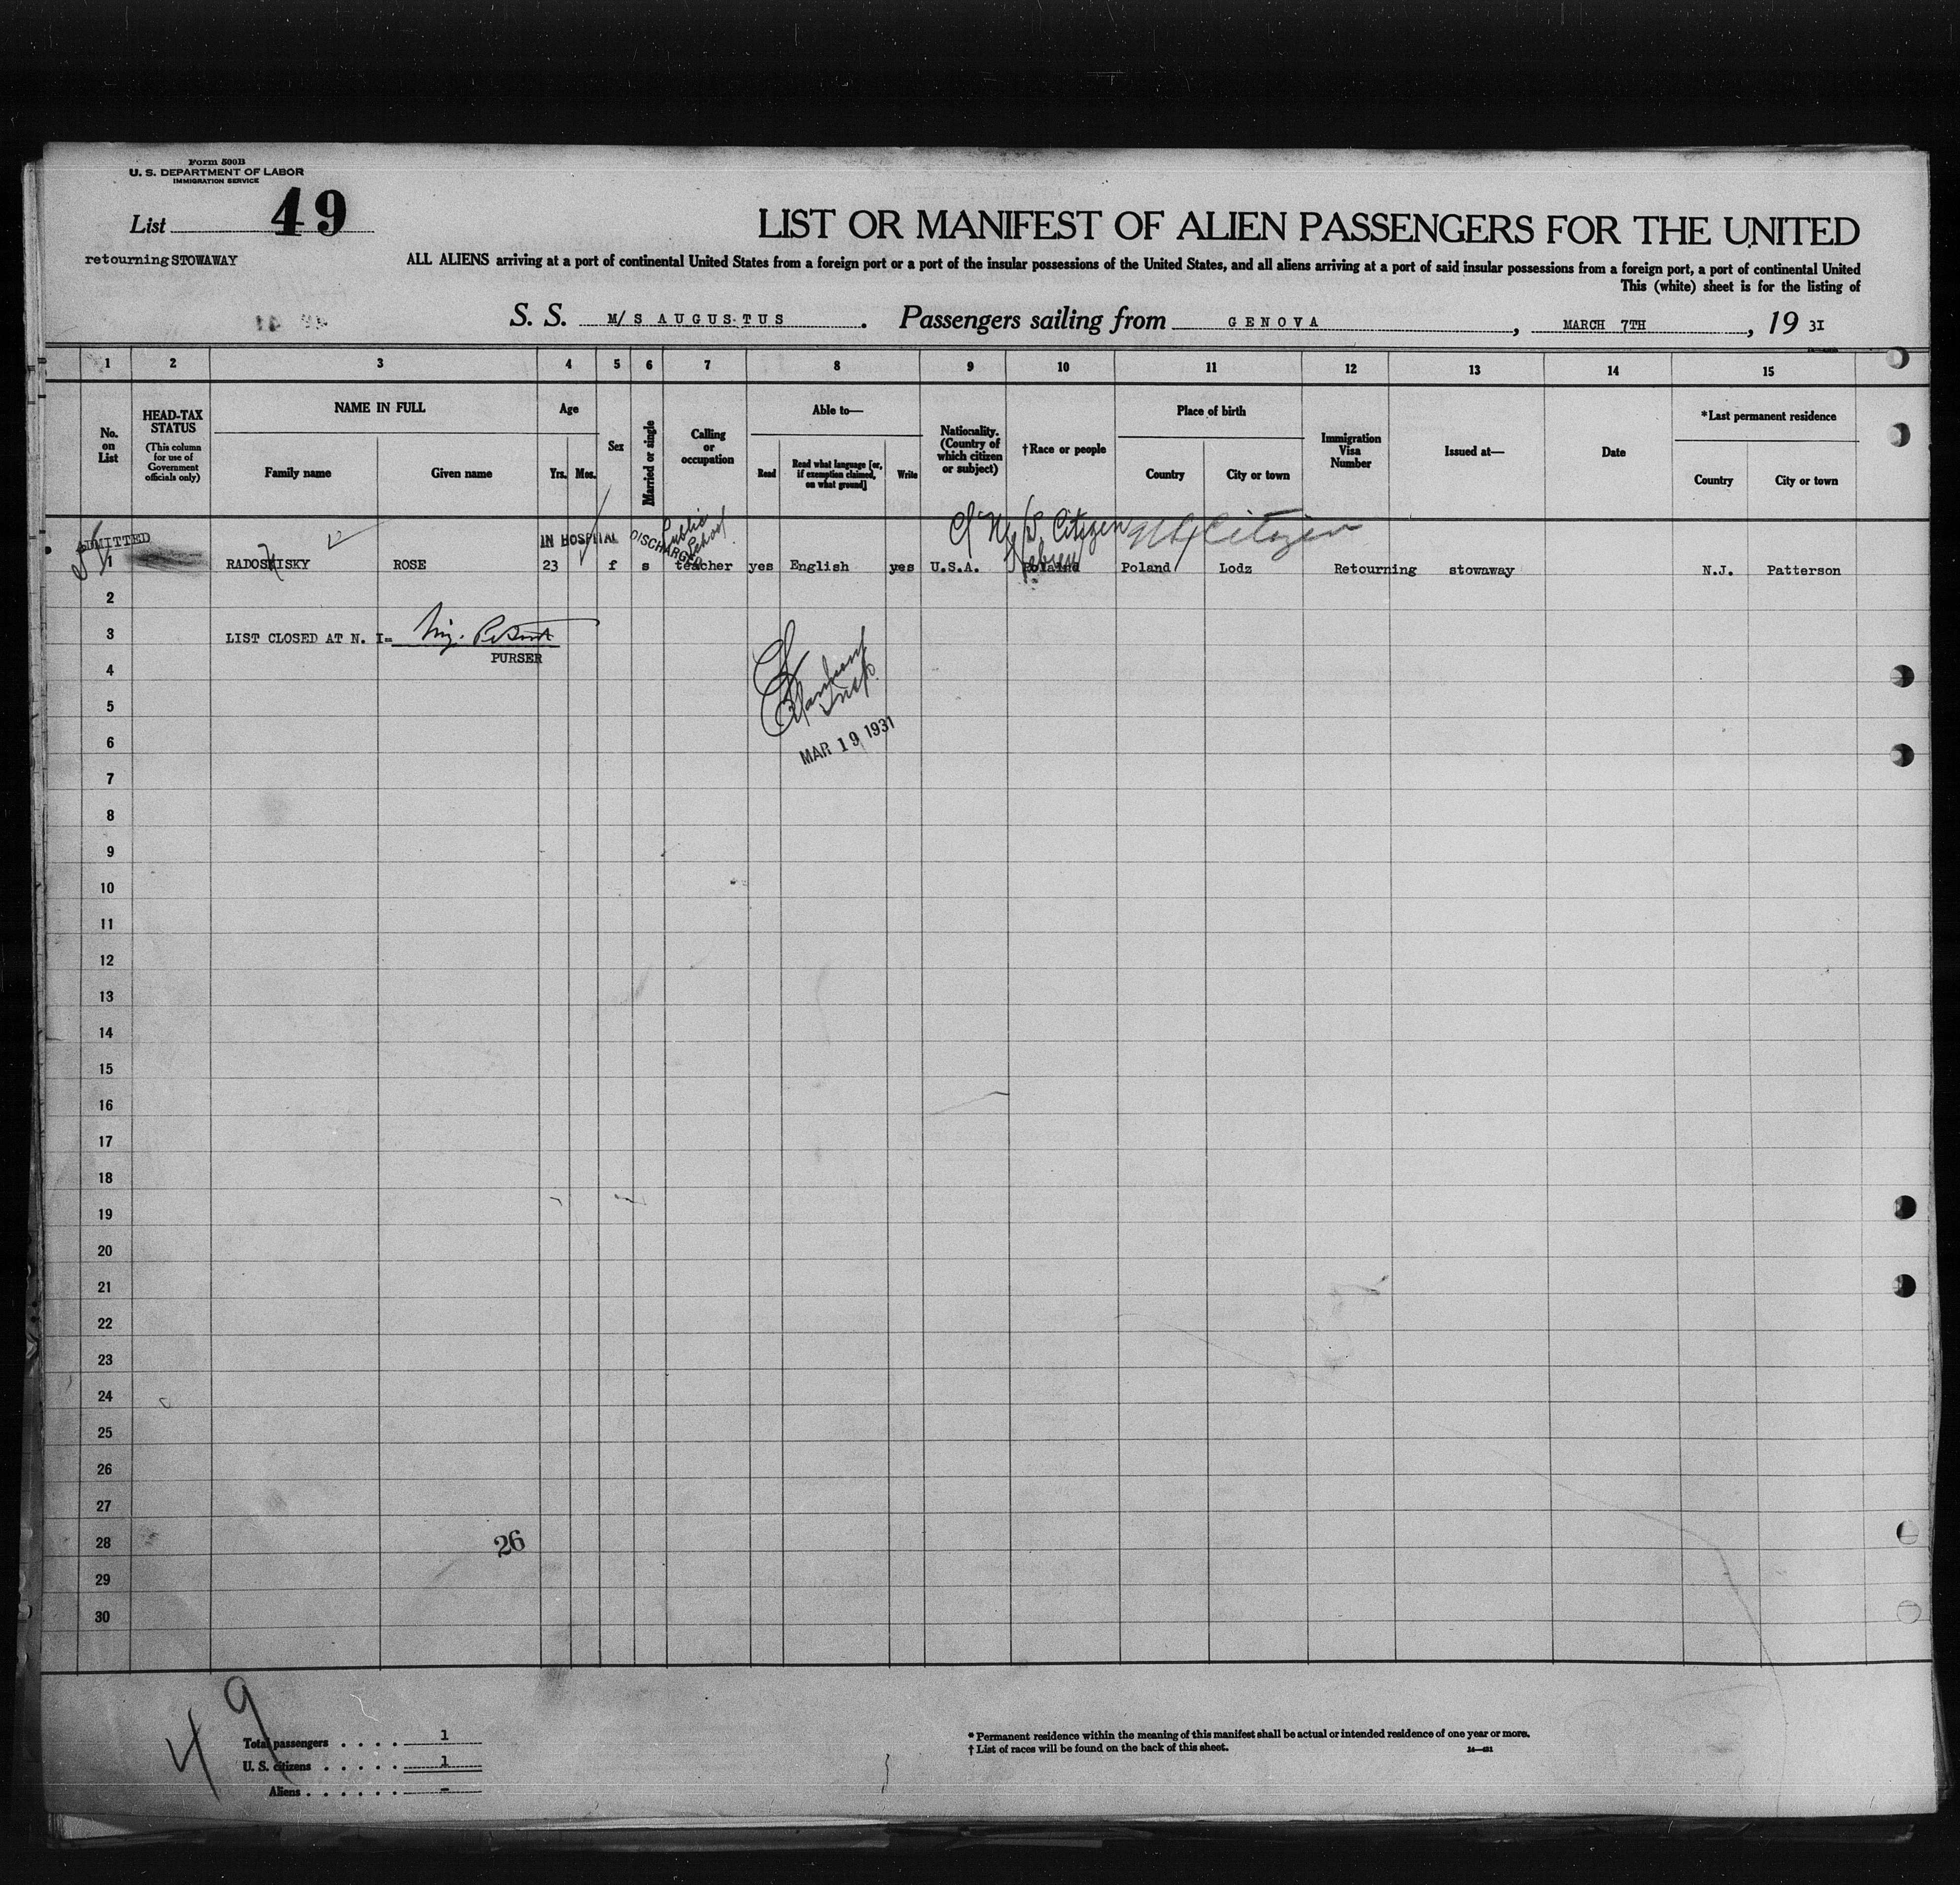 Form 500B
U. S. DEPARTMENT OF LABOR
IMMIGRATION SERVICE
List 49
retourning STOWAWAY
LIST OR MANIFEST OF ALIEN PASSENGERS FOR THE UNITED
ALL ALIENS arriving at a port of continental United States from a foreign port or a port of the insular possessions of the United States, and all aliens arriving at a port of said insular possessions from a foreign port, a port of continental United
This (white) sheet is for the listing of
S. S. M/S AUGUSTUS. Passengers sailing from GENOVA, MARCH 7TH, 19 31
1 2 3 4 5 6 7 8 9 10 11 12 13 14 15
No. on List
HEAD-TAX STATUS
(This column for use of Government officials only)
NAME IN FULL
Family name Given name
Age
Yrs. Mos.
Sex
Married or single
Calling or occupation
Able to—
Read
Read what language [or, if exemption claimed, on what ground]
Write
Nationality. (Country of which citizen or subject)
†Race or people
Place of birth
Country City or town
Immigration Visa Number
Issued at—
Date
*Last permanent residence
Country City or town
ADMITTED
IN HOSPITAL DISCHARGED Public School
U.S. Citizen US Citizen
Hebrew
1 RADOSHISKY ROSE 23 f s teacher yes English yes U.S.A. Poland Lodz Retourning stowaway N.J. Patterson
2
3 LIST CLOSED AT N. I=
PURSER
4
5
Insp.
6
MAR 19 1931
7
8
9
10
11
12
13
14
15
16
17
18
19
20
21
22
23
24
25
26
27
28 26
29
30
49
Total passengers . . . . 1
U. S. citizens . . . . . 1
Aliens . . . . . . -
* Permanent residence within the meaning of this manifest shall be actual or intended residence of one year or more.
† List of races will be found on the back of this sheet.